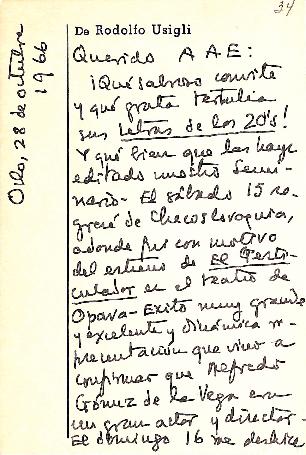 34
De Rodolfo Usigli
Oslo, 28 de octubre
1966
Querido A A E:
¡Qué sabroso convite
y qué grata tertulia
sus Letras de los 20's!
Y qué bien que las haya
editado nuestro Semi-
nario - El sábado 15 re-
gresé de Checoslovaquia,
adonde fui con motivo
del estreno de El Gesti-
culador en el teatro de
Opava - Exito muy grande
y excelente y dinámica re-
presentación que vino a
confirmar que Alfredo
Gómez de la Vega era
un gran actor y director -
El domingo 16 me